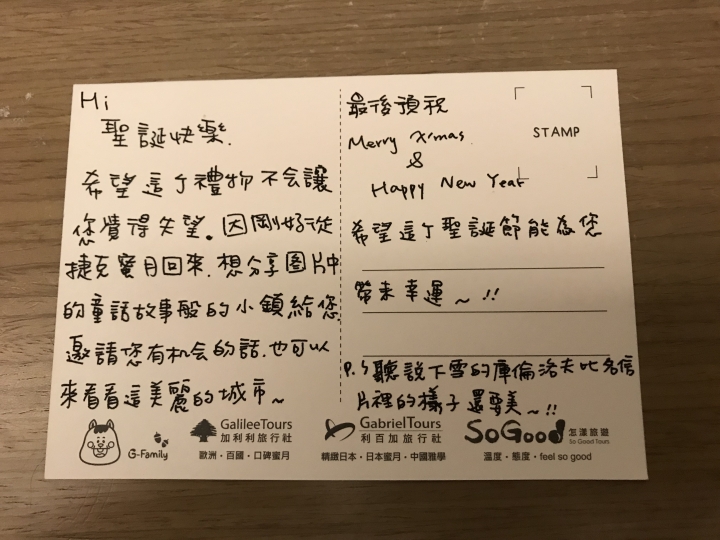 Hi
聖誕快樂.
希望這个禮物不会讓
您覺得失望。因剛好從
捷克蜜月回來.想分享圖片中
的童話故事般的小鎮給您.
邀請您有机会的話.也可以
來看看這美麗的城市~
最後預祝
Merry X'mas
&
Happy New Year
希望這个聖誕節能為您
帶來幸運~!!
P.S聽說下雪的庫倫洛夫比名信
片裡的樣子還要美~!!
STAMP
G-Family
GalileeTours
加利利旅行社
歐洲・百國・口碑蜜月
GabrielTours
利百加旅行社
精緻日本・日本蜜月・中國雅學
SoGood 怎漾旅遊
So Good Tours
溫度・態度・feel so good